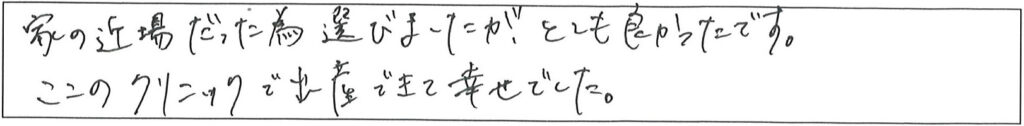 家の近場だった為選びましたが、とても良かったです。
ここのクリニックで出産できて幸せでした。